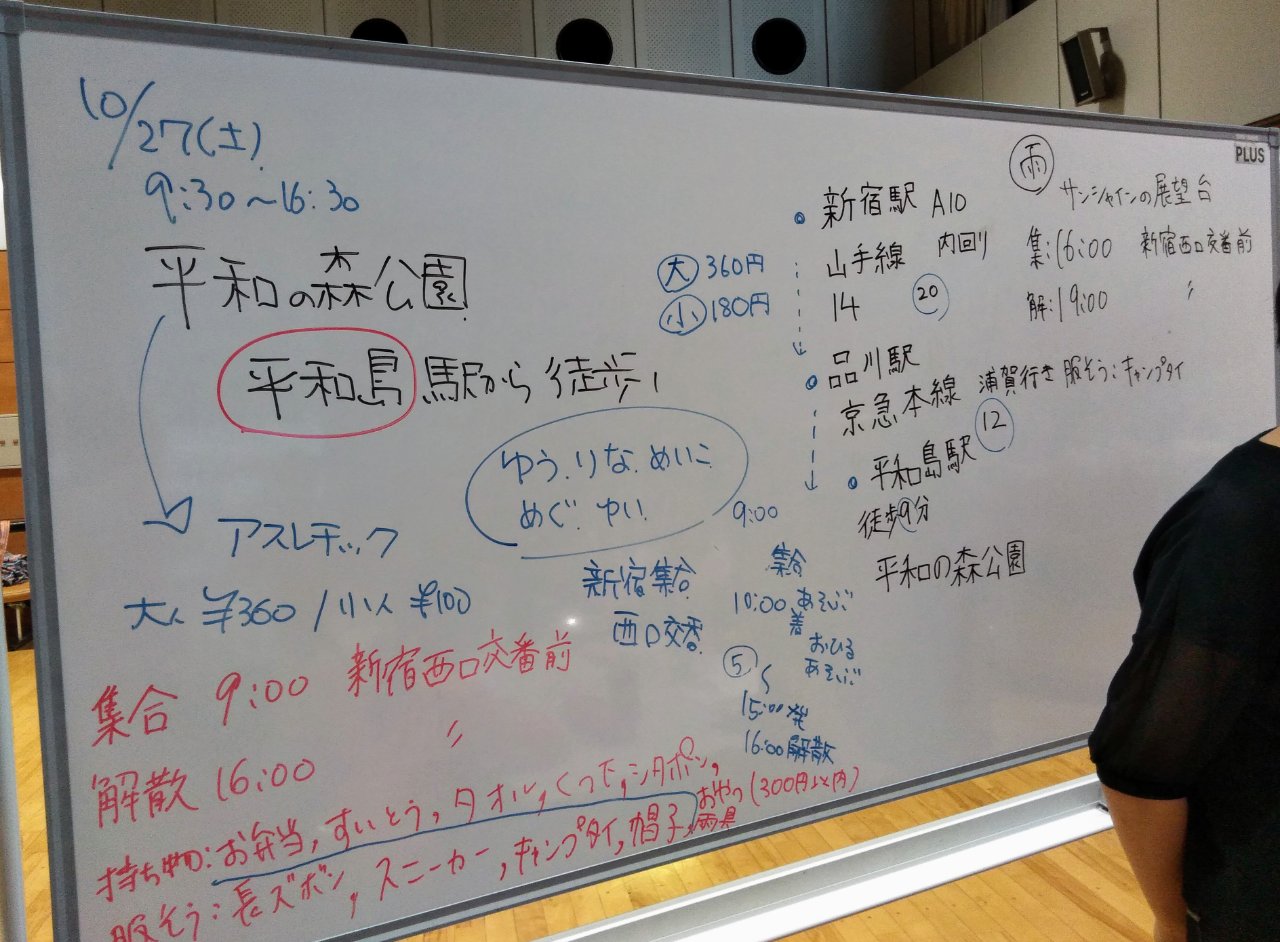 10/27(土)
9:30～16:30
平和の森公園
平和島駅から徒歩
アスレチック
大人 ¥360 / 小人 ¥100
集合 9:00 新宿西口交番前
解散 16:00 〃
持ち物:お弁当,すいとう,タオル,くつ下,シタポン,
おやつ(300円以内)
雨具
服そう:長ズボン,スニーカー,キャンプタイ,帽子,
ゆう.りな.めいこ
めぐ.ゆい
新宿集合
西口交番
9:00
集合
10:00 あそぶ
着
おひる
あそぶ
⑤
～
15:00発
16:00解散
大 360円
小 180円
新宿駅 A10
山手線 内回り
14 ⑳
品川駅
京急本線 浦賀行き
⑫
平和島駅
徒歩9分
平和の森公園
雨
サンシャインの展望台
集:16:00 新宿西口交番前
解:19:00 〃
服そう:キャンプタイ
PLUS